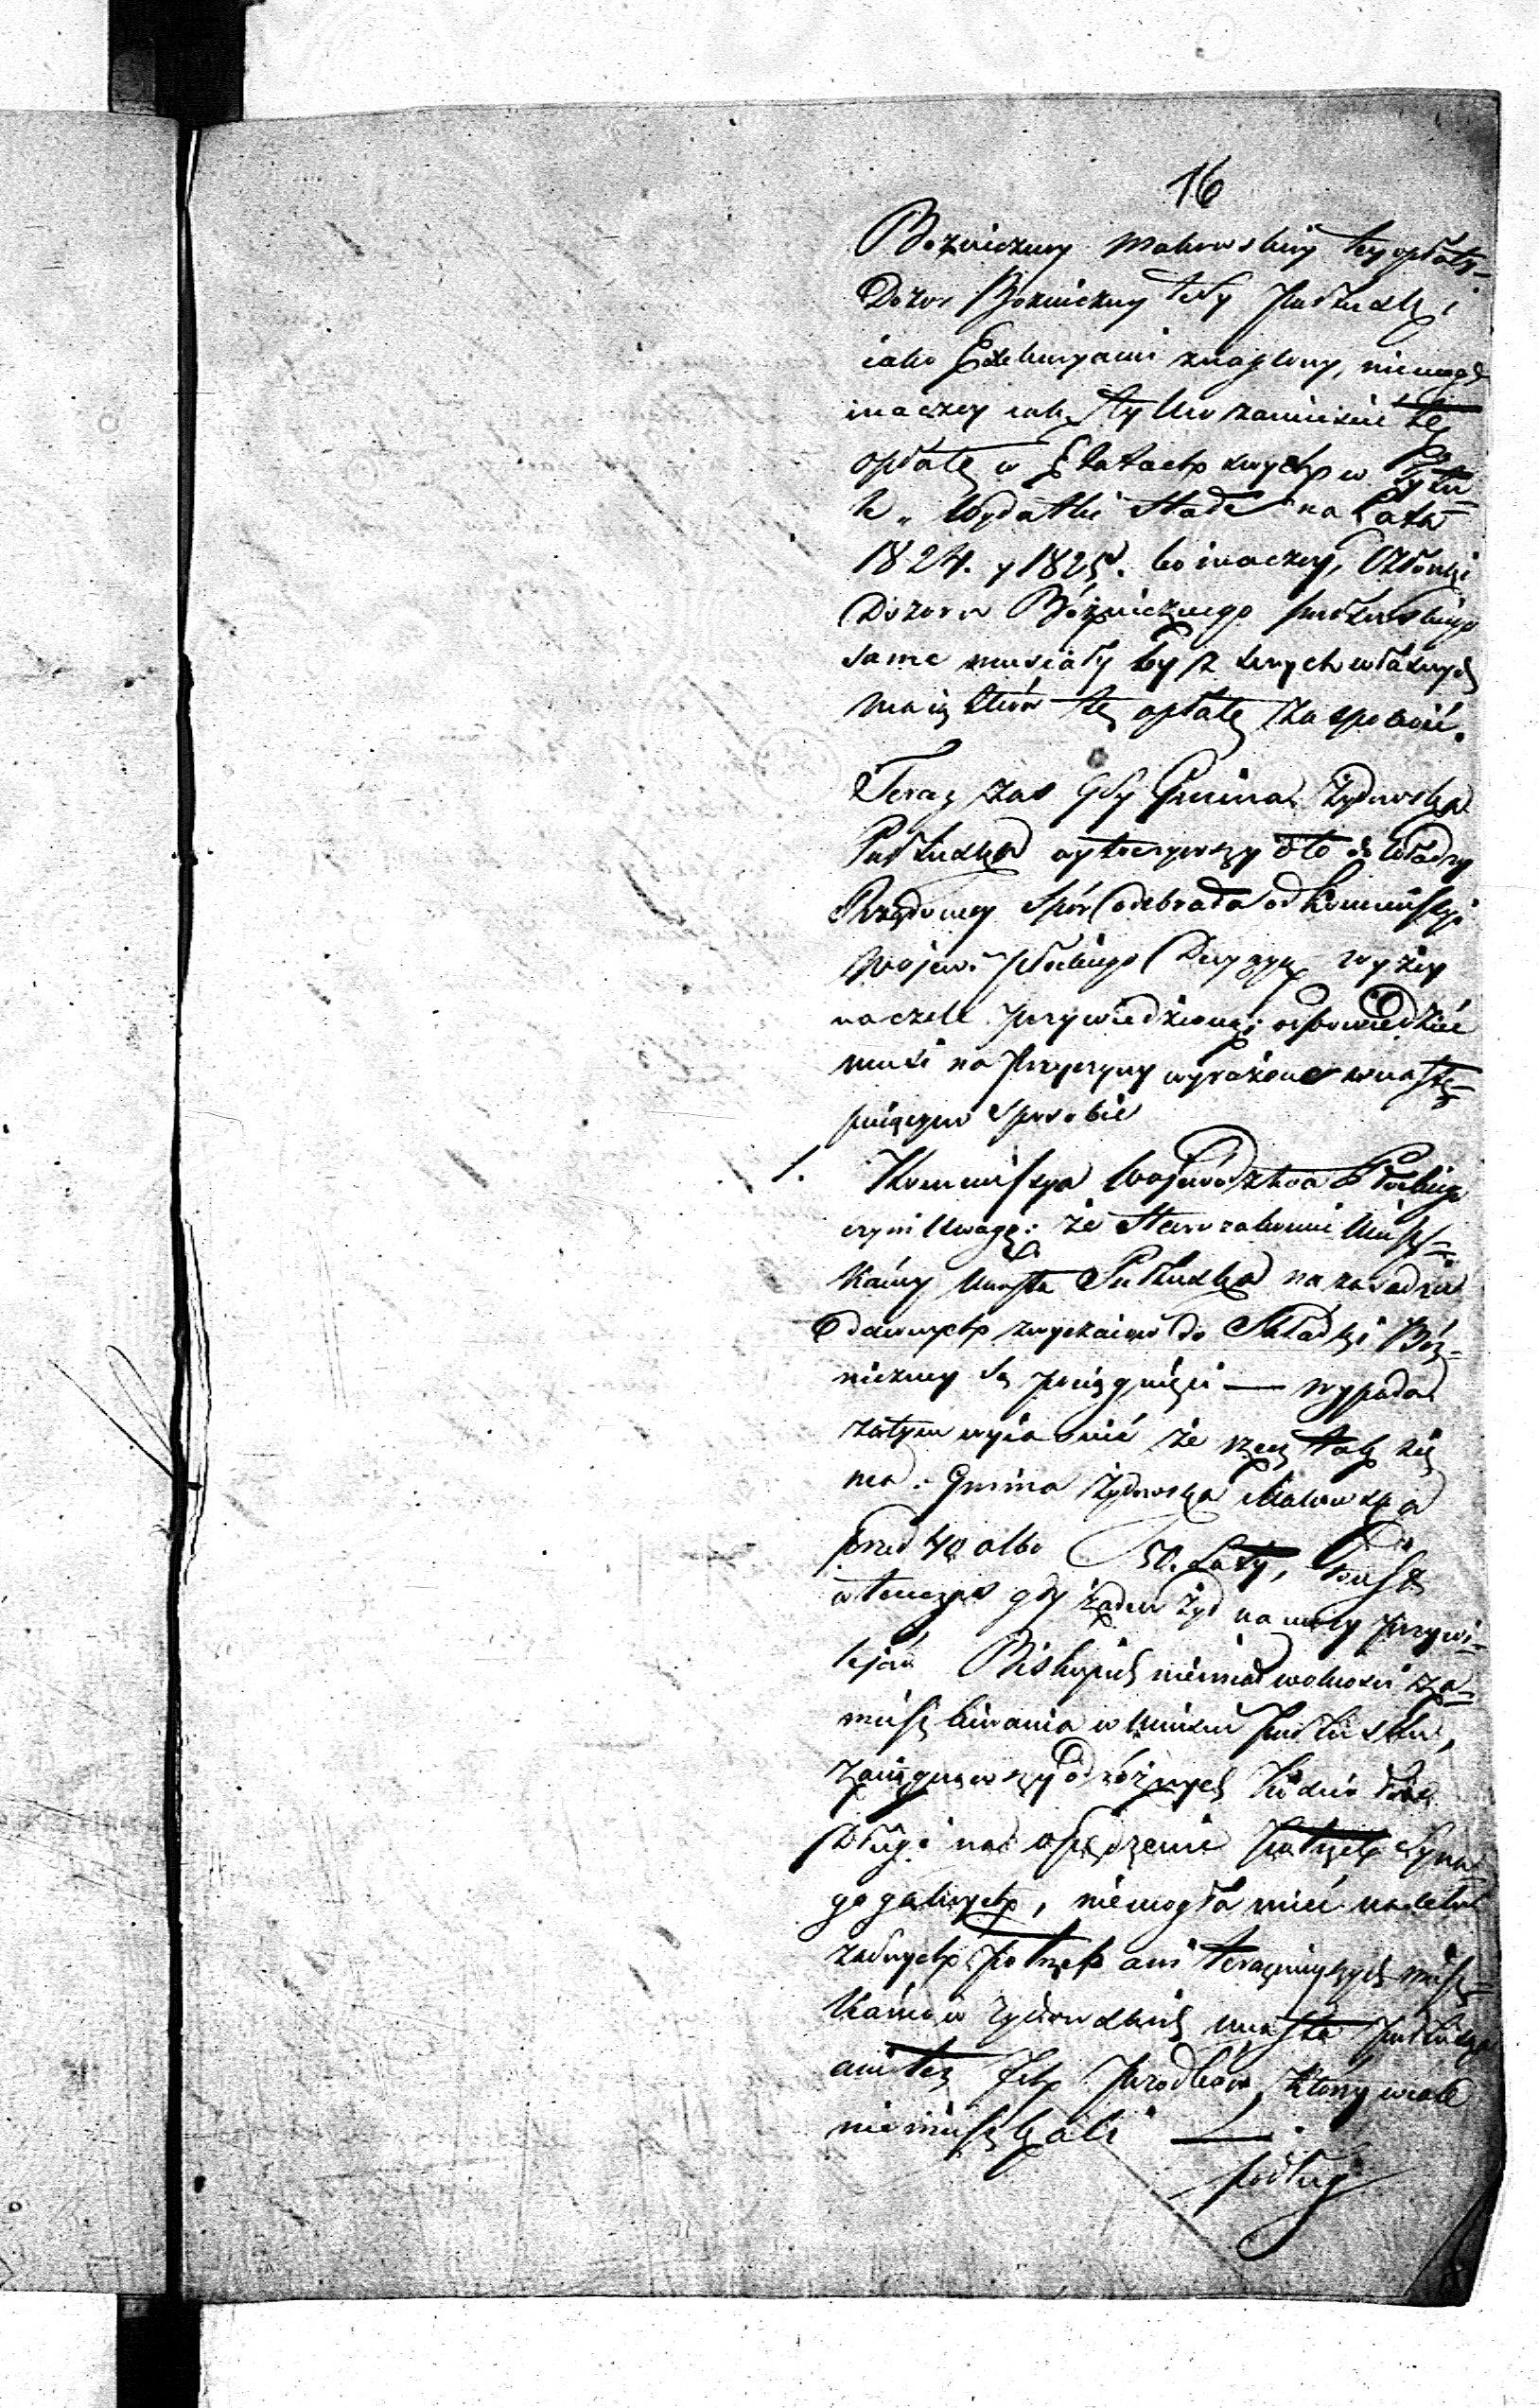 16
Bozniczny Makowskiey tey opłaty
Dozor Bozniczny tedy Pułtuski i
iako Exekucyami znaglony, niemogł
inaczey iak tylko zamieścić tę
opłatę w Etatach swych w Tytu=
le „ Wydatki Stałe na Lata
1824. y 1825. bo inaczey, Członki
Dozoru Bóżnicznego Pułtuskiego
same musiały by z swych własnych
maiątków tę opłatę zaspokoić.
Teraz zas gdy Gmina Żydowska
Pułtuska wytoczywszy oto do Władzy
Rządowey Spór odebrała od Kommissyi
Wojew: Płockiego Decyzyę wyżey
na czele przywiedzioną; odpowiedzieć
musi na przyczyny wyrażone w nastę=
puiącym sposobie
1. Kommissya Województwa Płockiego
czyni Uwagę: że Starozakonni Miesz=
kańcy Miasta Pułtuska na zasadzie
dawnych zwyczaiów do Składki Bóż=
niczney są pociągnięci — wypada
zatym wyiaśnić że rzecz tak się
ma. Gmina Żydowska Makowska
przed 40 albo 50. Laty,
wtenczas gdy żaden Żyd na mocy Przywi=
lejów Biskupich niemiał wolności za=
mieszkiwania w Mieście Pułtusku,
zaciągnąwszy od różnych
Długi na opędzenie potrzeb Syna=
gogalnych, niemogła mieć na celu
żadnych potrzeb ani teraźnieyszych miesz=
kańców żydowskich miasta Pułtuska
ani też Jch Przodków, ktorzy wcale
niemieszkali —
podług